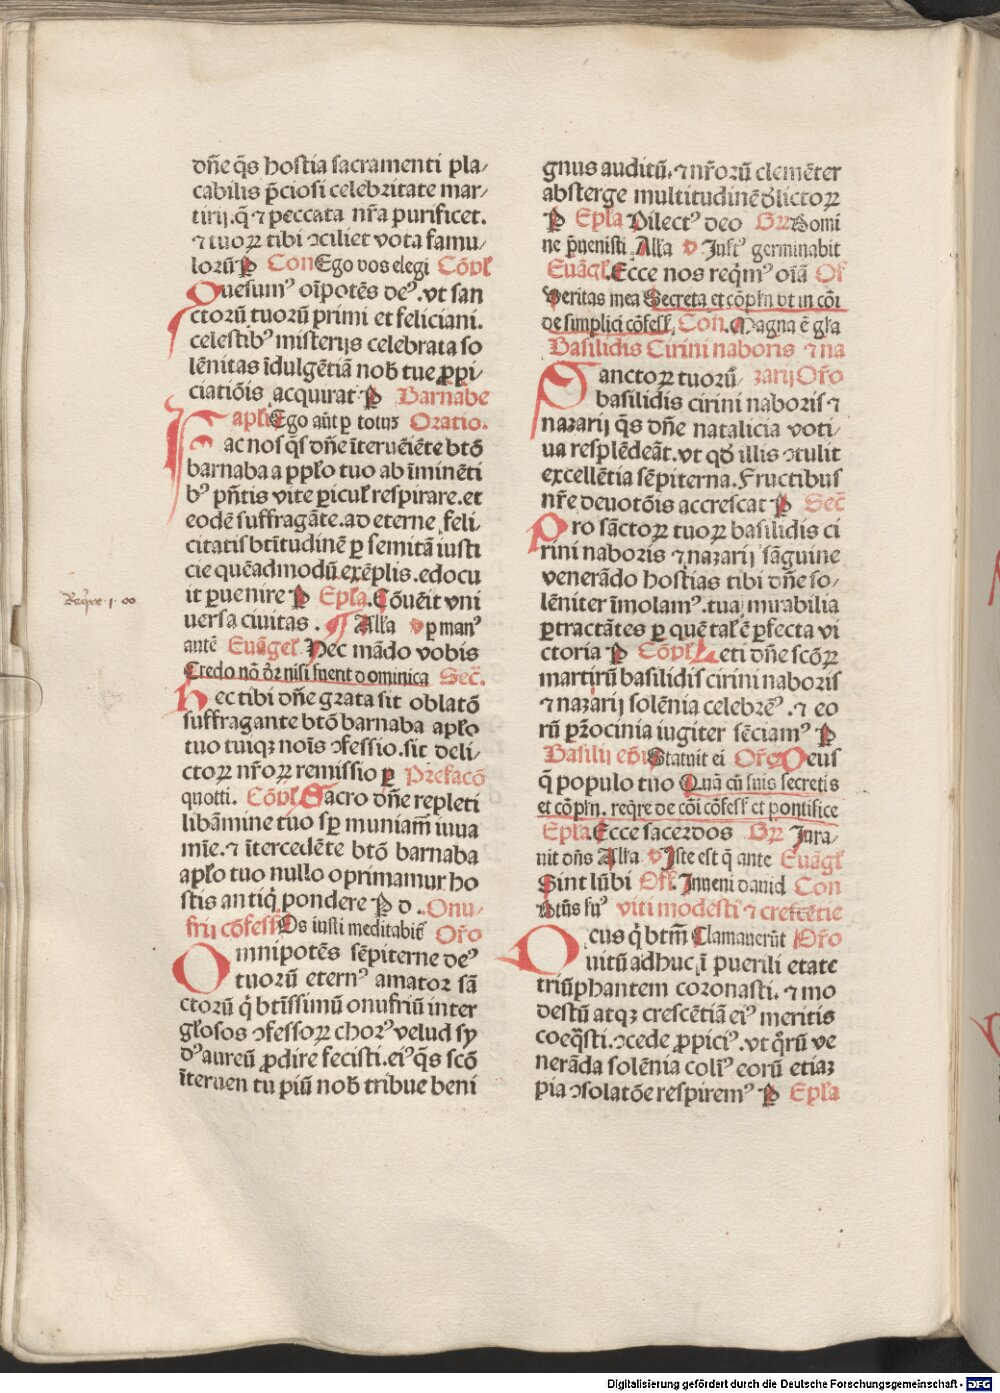 dñe q̃s hostia sacramenti pla⸗
cabilis p̃ciosi celebritate mar⸗
tirij.q̃ ⁊ peccata nr̃a purificet.
⁊ tuoꝝ tibi ↄciliet vota famu⸗
lorũ P Con Ego vos elegi Cõpl̃
Quesumꝰ oĩpotẽs deꝰ.vt san
ctorũ tuorũ primi et feliciani.
celestibꝰ misterijs celebrata so
lẽnitas ĩdulgẽtiã nob̃ tue ꝓpi⸗
ciatiõis acquirat P Barnabe
apl̃i Ego aũt ꝑ totũ Oratio.
Fac nos q̃s dñe ĩteruẽiẽte btõ
barnaba a ppl̃o tuo ab ĩminẽti
bꝰ pñtis vite ꝑicul̃ respirare.et
eodẽ suffragãte.ad eterne feli⸗
citatis btĩtudinẽ ꝑ semitã iusti
cie quẽadmodũ exẽplis.edocu
it ꝑuenire P Epl̃a. Cõuẽit vni
uersa ciuitas . ¶ All̃a v ꝑ manꝰ
antẽ Euãgel̃ Hec mãdo vobis
Credo nõ dr̃ nisi fuerit dominica Sec̃.
Hec tibi dñe grata sit oblatõ
suffragante btõ barnaba apl̃o
tuo tuiqꝫ noĩs ↄfessio.sit deli⸗
ctoꝝ nr̃oꝝ remissio ꝑ Prefacõ
quotti. Cõpl̃ Sacro dñe repleti
libãmine tuo sꝑ muniam̃ iuua
mĩe.⁊ ĩtercedẽte btõ barnaba
apl̃o tuo nullo oprimamur ho
stis antiq̃ pondere P d . Onu⸗
frij cõfess̃ Os iusti meditabit̃ Or̃o
Omnipotẽs sẽpiterne deꝰ
tuorũ eternꝰ amator sã
ctorũ q̃ btĩssimũ onufriũ inter
gl̃osos ↄfessoꝝ chorꝰ velud sy
dꝰ aureũ ꝓdire fecisti.eiꝰ q̃s scõ
ĩteruen tu piũ nob̃ tribue beni
Req̃re ·1· oo
gnus auditũ.⁊ nr̃orũ clemẽter
absterge multitudinẽ dl̃ictoꝝ
P Epl̃a Dilectꝰ deo Gr̃ Domi
ne p̃uenisti All̃a v Justꝰ germinabit
Euãgl̃. Ecce nos req̃mꝰ oĩa Of̃
Veritas mea Secreta et cõpl̃n vt in cõi
de simplici cõfess̃. Con. Magna ẽ gl̃a
Basilidis Cirini naboris ⁊ na
Sanctoꝝ tuorũ zarij Or̃o
basilidis cirini naboris ⁊
nazarij q̃s dñe natalicia voti⸗
ua resplẽdeãt.vt qd̃ illis ↄtulit
excellẽtia sẽpiterna.Fructibus
nr̃e deuotõis accrescat P Sec̃
Pro sãctoꝝ tuoꝝ basilidis ci
rini naboris ⁊ nazarij sãguine
venerãdo hostias tibi dñe so⸗
lẽniter ĩmolamꝰ.tua mirabilia
ꝑtractãtes ꝑ quẽ tal̃ ẽ ꝑfecta vi
ctoria P Cõpl̃ Leti dñe scõꝝ
martirũ basilidis cirini naboris
⁊ nazarij solẽnia celebrẽꝰ.⁊ eo
rũ pr̃ocinia iugiter sẽciamꝰ P
Basilij ep̃i Statuit ei Or̃o Deus
q̃ populo tuo Quã cũ suis secretis
et cõpl̃n. req̃re de cõi cõfess̃ et pontifice
Epl̃a. Ecce sacerdos Gr̃ Jura⸗
uit dñs All̃a v Iste est q̃ ante Euãgl̃
Sint lũbi Off̃. Jnueni dauid Con
Btũs fuꝰ viti modesti ⁊ crescẽtie
Deus q̃ btm̃ Clamauerũt Or̃o
uitũ adhuc ĩ puerili etate
triũphantem coronasti. ⁊ mo
destũ atqꝫ crescẽtiã eiꝰ meritis
coeq̃sti.ↄcede ꝓpiciꝰ.vt q̃rũ ve
nerãda solẽnia colĩꝰ eorũ etiaꝫ
pia ↄsolatõe respiremꝰ P Epl̃a
Digitalisierung gefördert durch die Deutsche Forschungsgemeinschaft - DFG